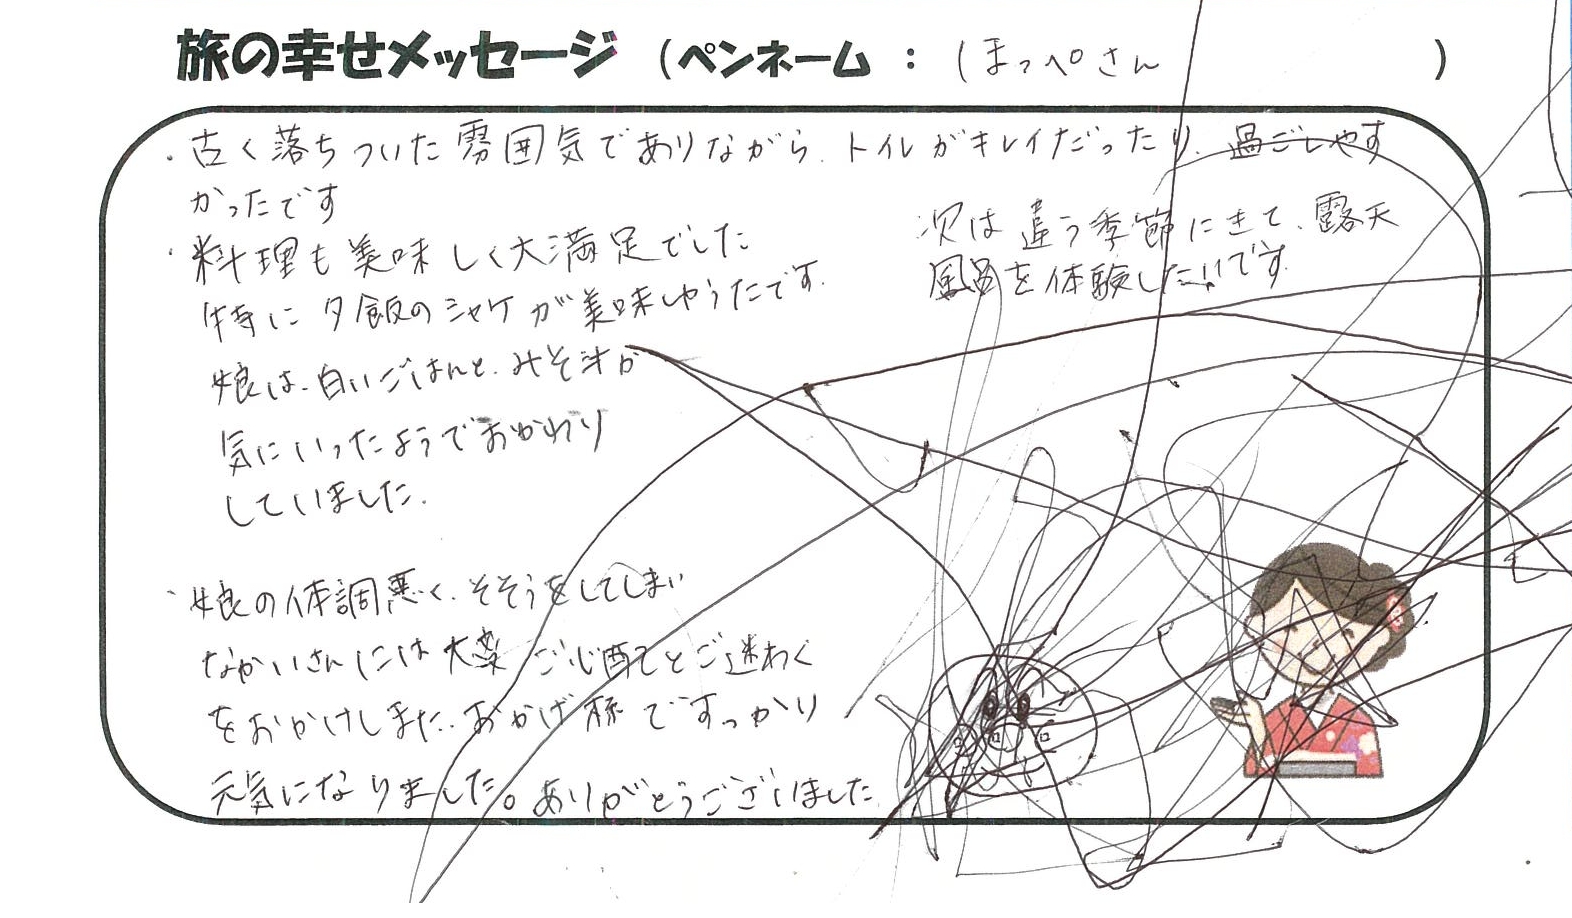 旅の幸せメッセージ （ペンネーム ： しまっぺさん ）
・古く落ちついた雰囲気でありながら、トイレがキレイだったり、過ごしやす
かったです
・料理も美味しく大満足でした
特に夕飯のシャケが美味しかったです。
娘は、白いごはんと、みそ汁が
気にいったようでおかわり
していました。
次は違う季節にきて、露天
風呂を体験したいです。
・娘の体調悪く、そそうをしてしまい
なかいさんには大変ご心配とご迷わく
をおかけしました。おかげ様ですっかり
元気になりました。ありがとうございました